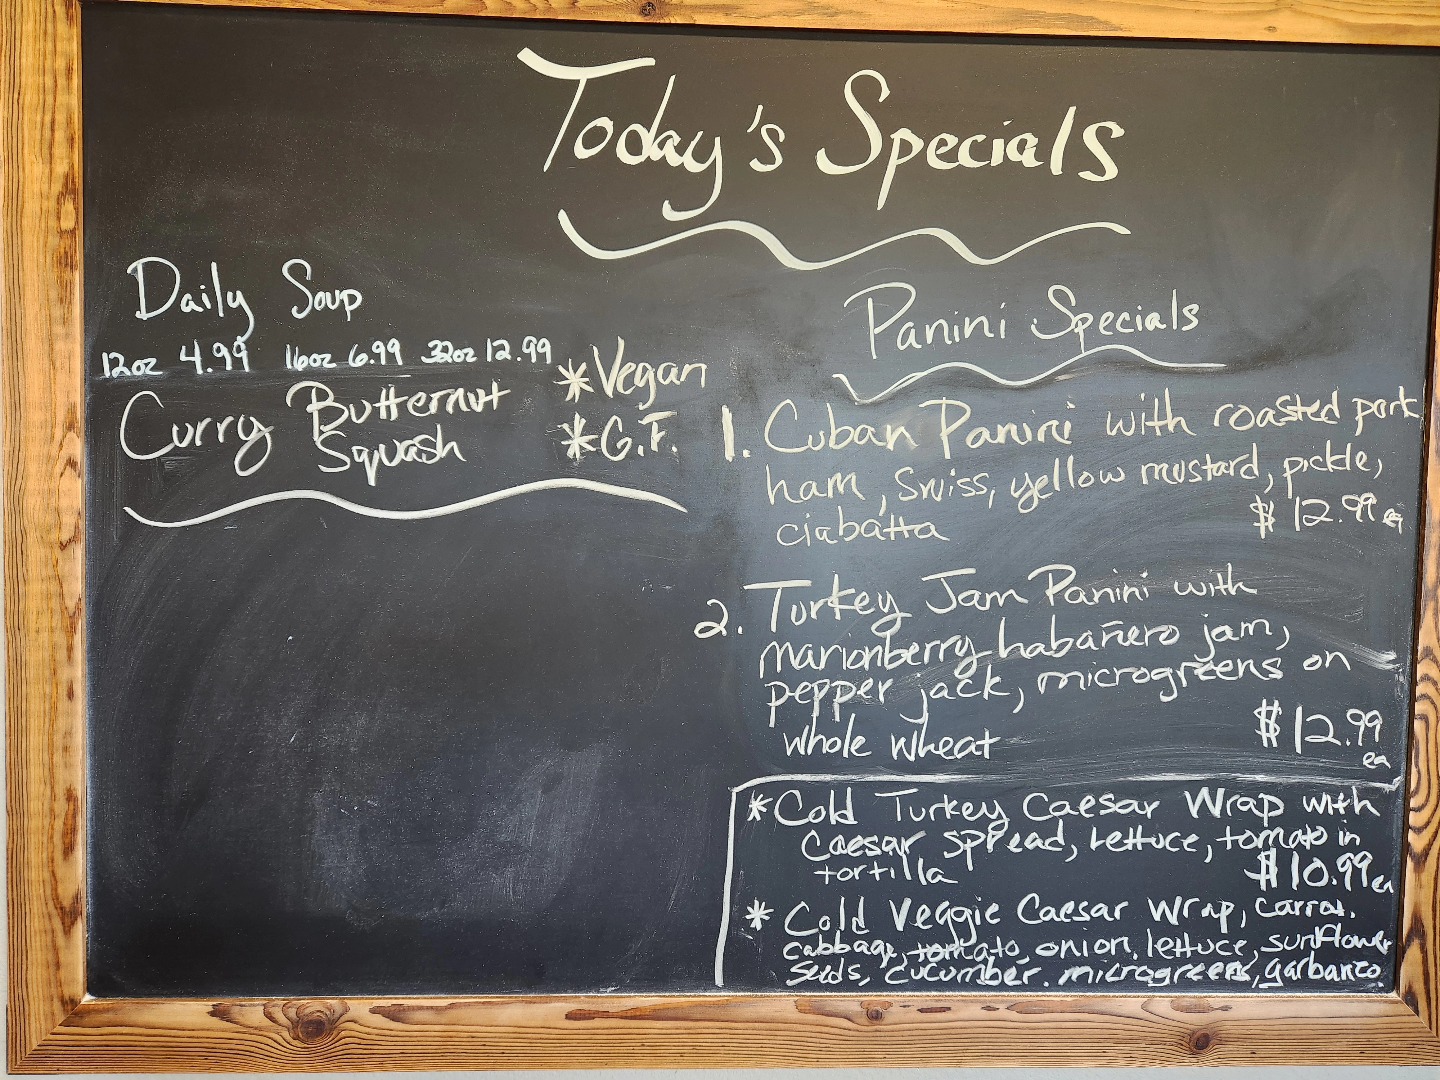 Today's Specials
Daily Soup
12oz 4.99 16oz 6.99 32oz 12.99
Curry Butternut
Squash
*Vegan
*G.F.
Panini Specials
1. Cuban Panini with roasted pork
ham, Swiss, yellow mustard, pickle,
ciabatta $12.99 ea
2. Turkey Jam Panini with
marionberry habañero jam,
pepper jack, microgreens on
whole wheat $12.99
ea
*Cold Turkey Caesar Wrap with
Caesar spread, lettuce, tomato in
tortilla $10.99 ea
* Cold Veggie Caesar Wrap, carrot,
cabbage, tomato, onion, lettuce, sunflower
seeds, cucumber, microgreens, garbanzo